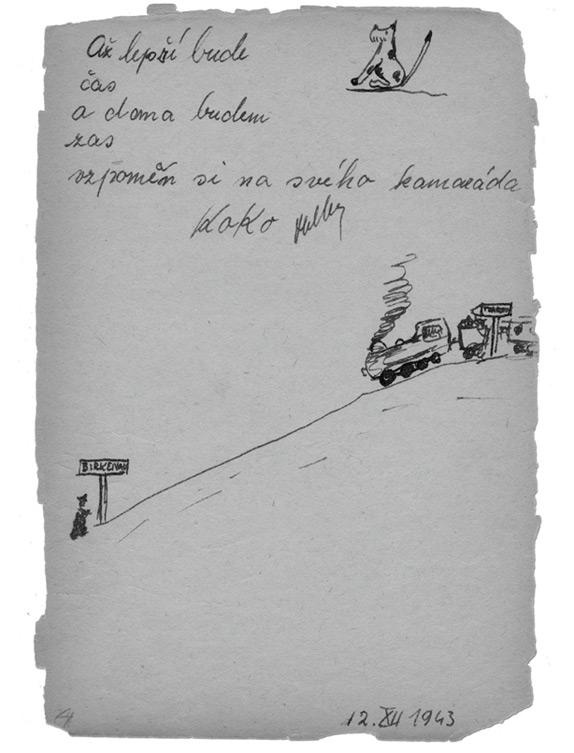 Až lepší bude
čas
a doma budem
zas
vzpoměň si na svého kamaráda
Koko
BIRKENAU
12. XII 1943